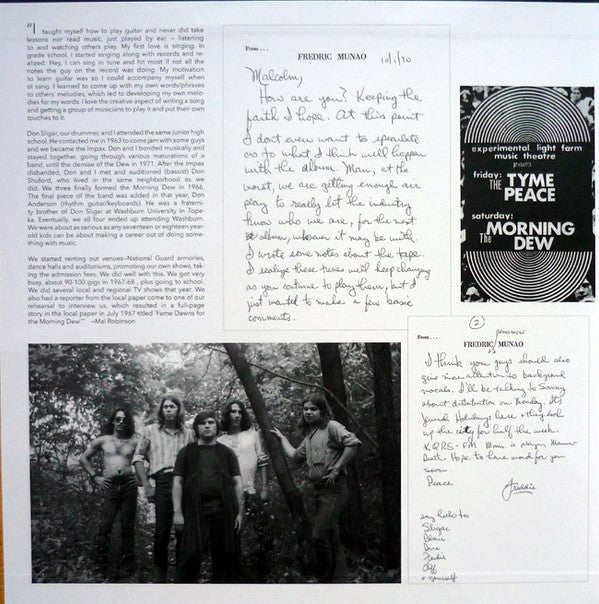 "I taught myself how to play guitar and never did take
lessons nor read music, just played by ear -- listening
to and watching others play. My first love is singing. In
grade school, I started singing along with records and re-
alized: Hey, I can sing in tune and hit most if not all the
notes the guy on the record was doing. My motivation
to learn guitar was so I could accompany myself when
I sang. I learned to come up with my own words/phrases
to others' melodies, which led to developing my own melo-
dies for my words. I love the creative aspect of writing a song
and getting a group of musicians to play it and put their own
touches to it.
Don Sligar, our drummer, and I attended the same junior high
school. He contacted me in 1963 to come jam with some guys
and we became the Impax. Don and I bonded musically and
stayed together, going through various maturations of a
band, until the demise of the Dew in 1971. After the Impax
disbanded, Don and I met and auditioned (bassist) Don
Shuford, who lived in the same neighborhood as we
did. We three finally formed the Morning Dew in 1966.
The final piece of the band was added in that year, Don
Anderson (rhythm guitar/keyboards). He was a frater-
nity brother of Don Sligar at Washburn University in Tope-
ka. Eventually, we all four ended up attending Washburn.
We were about as serious as any seventeen or eighteen year-
old kids can be about making a career out of doing some-
thing with music.
We started renting out venues–National Guard armories,
dance halls and auditoriums, promoting our own shows, tak-
ing the admission fees. We did well with this. We got very
busy, about 90-100 gigs in 1967-68 , plus going to school.
We did several local and regional TV shows that year. We
also had a reporter from the local paper come to one of our
rehearsal to interview us, which resulted in a full-page
story in the local paper in July 1967 titled "Fame Dawns for
the Morning Dew." –Mal Robinson
From . . .
FREDRIC MUNAO
10/1/70
Malcolm,
How are you? Keeping the
faith I hope. At this point
I don't even want to speculate
as to what I think will happen
with the album. Man, at the
worst, we are getting enough air
play to really let the industry
know who we are, for the next
album, whoever it may be with.
I wrote some notes about the tape.
I realize these tunes will keep changing
as you continue to play them, but I
just wanted to make a few basic
comments.
experimental light farm
music theatre
presents
friday:
THE TYME
PEACE
saturday:
The MORNING
DEW
(2)
From . . .
FREDRIC MUNAO
I think you guys should also
give more attention to background
vocals. I'll be talking to Sonny
about distribution on Monday. It's
Jewish Holidays here & they look
up the city for half the week.
KQRS-FM
Hope to have word for you
soon.
Peace
Freddie
say hello to
Sligar
Blair
Dave
Ferdie
Cliff
& yourself